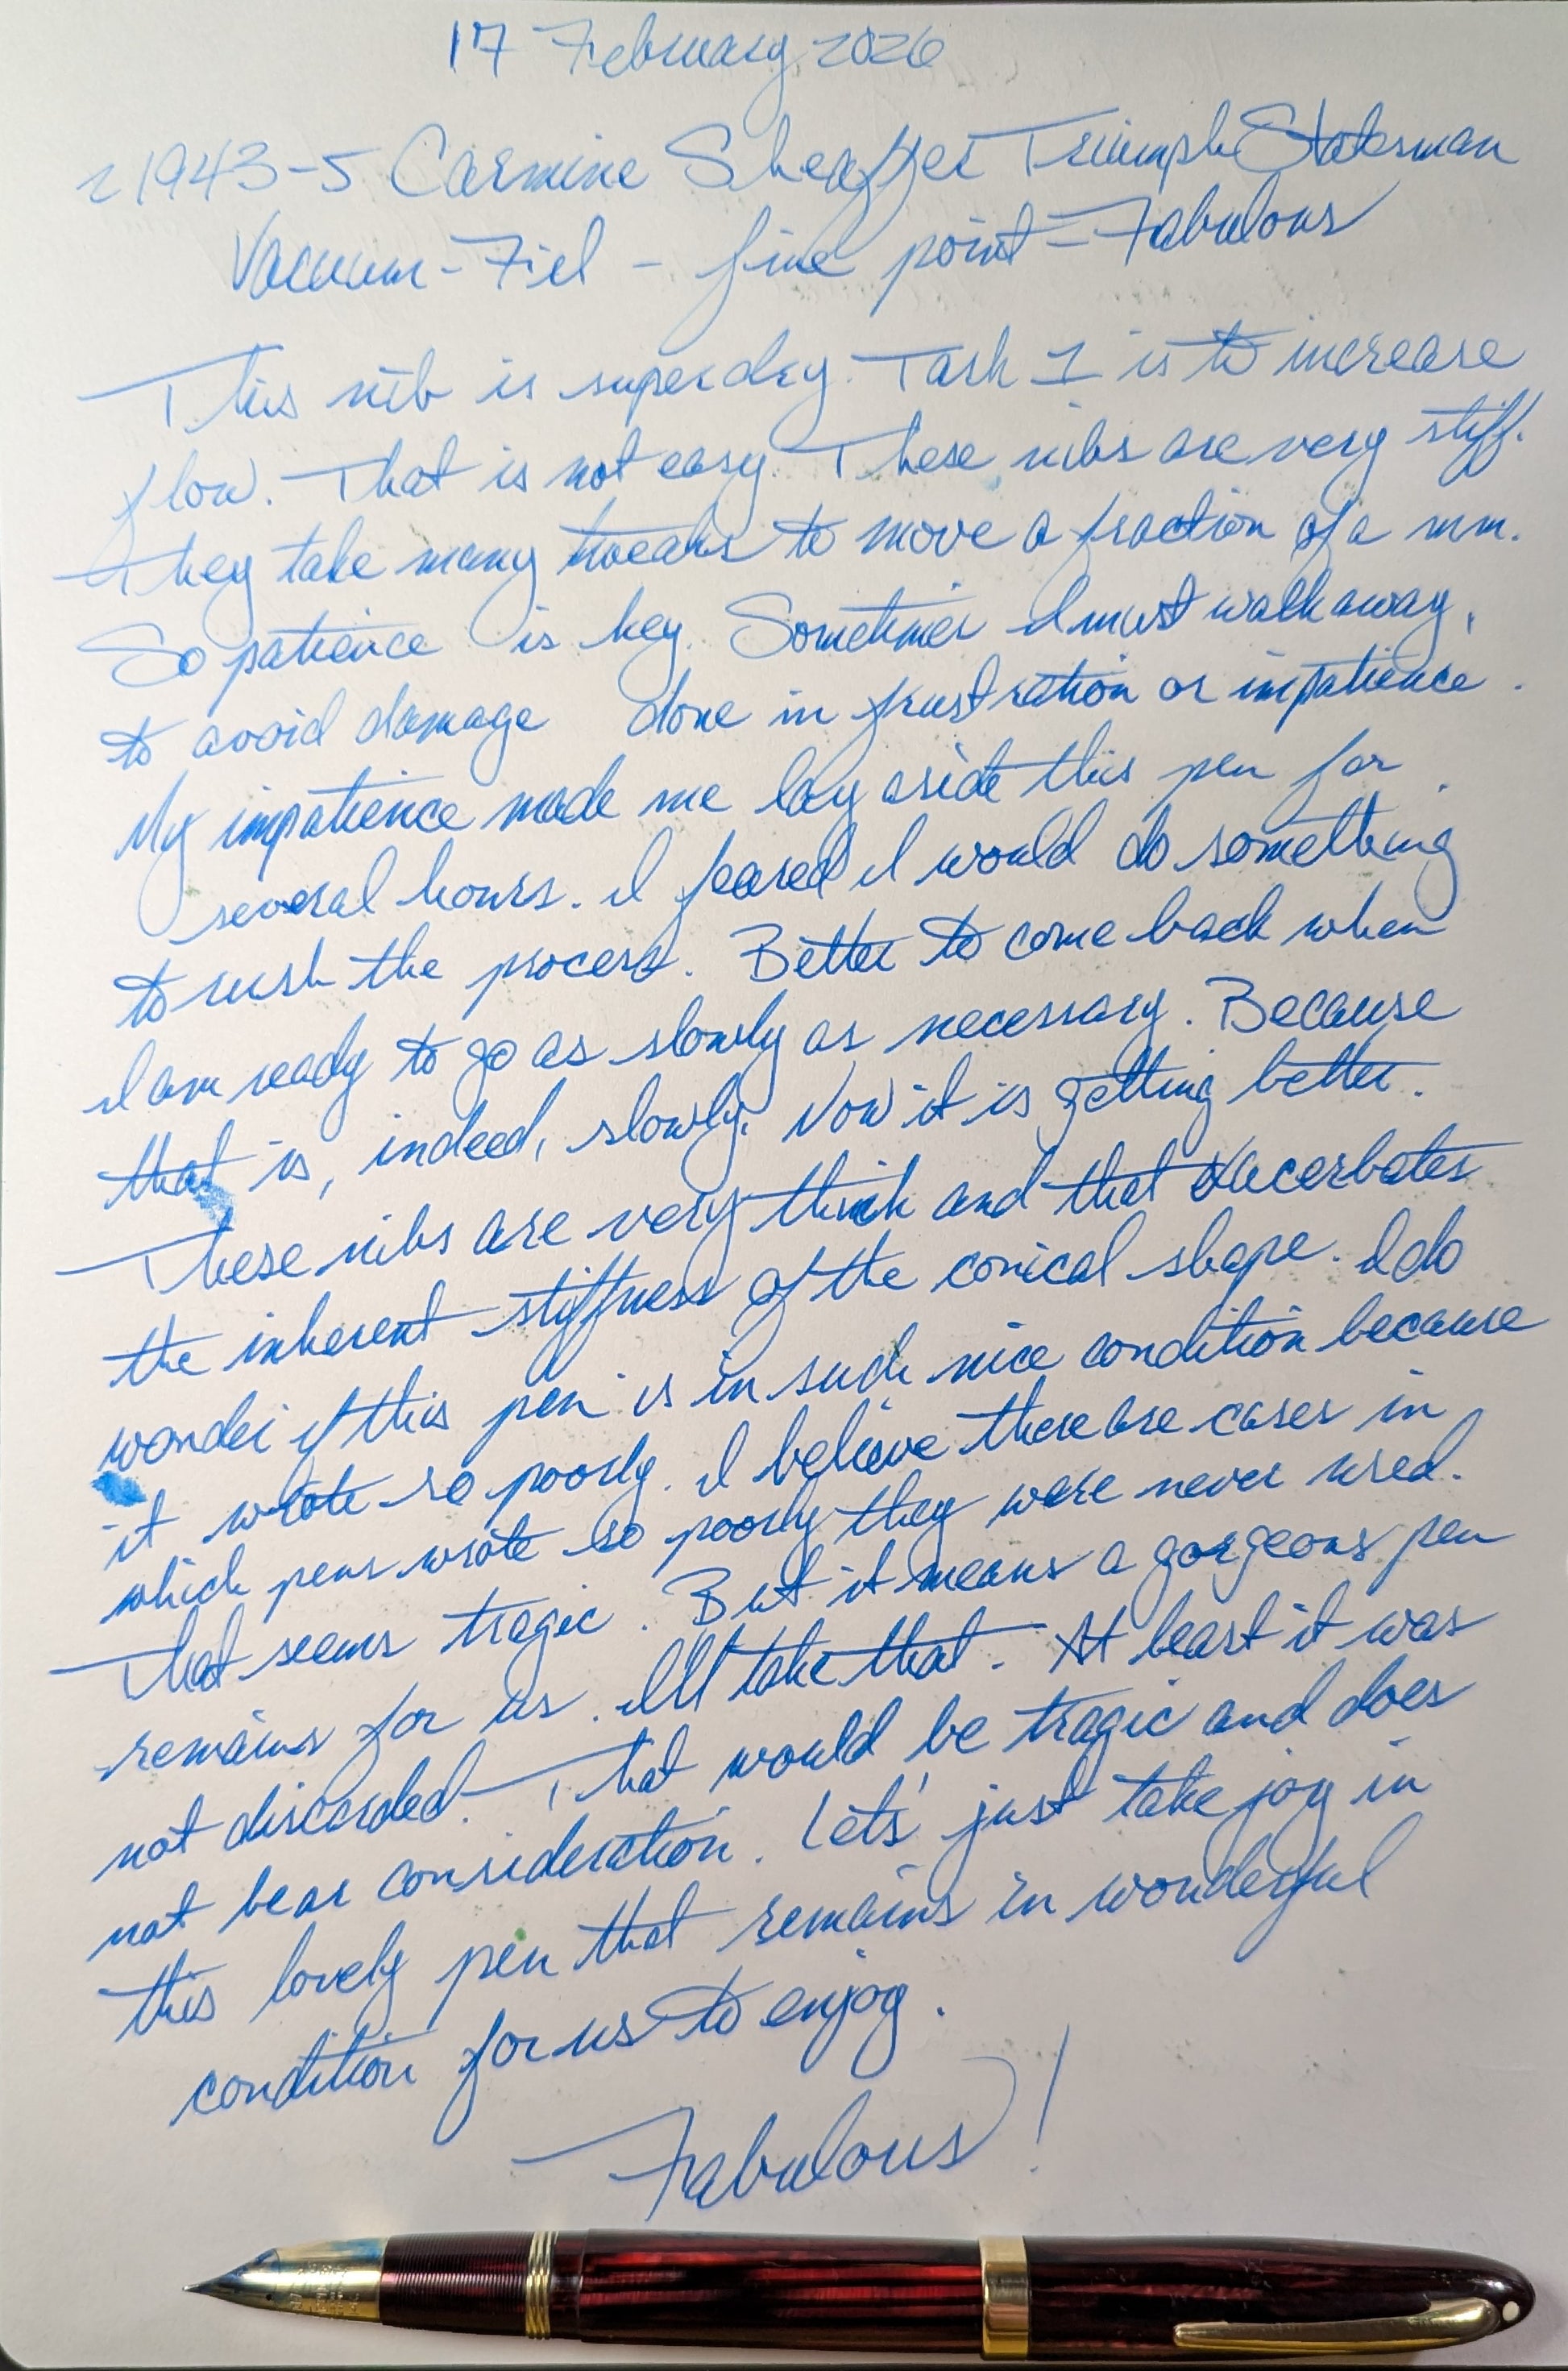 17 February 2026
~1943-5 Carmine Sheaffer Triumph Statesman
Vacuum-Fil - fine point - Fabulous
This nib is super dry. Task 1 is to increase
flow. That is not easy. These nibs are very stiff.
They take many tweaks to move a fraction of a mm.
So patience is key. Sometimes I must walk away,
to avoid damage done in frustration or impatience.
My impatience made me lay aside this pen for
several hours. I feared I would do something
to rush the process. Better to come back when
I am ready to go as slowly as necessary. Because
that is, indeed, slowly. Now it is getting better.
These nibs are very thick and that exacerbates
the inherent stiffness of the conical shape. I do
wonder if this pen is in such nice condition because
it wrote so poorly. I believe there are cases in
which pens wrote so poorly they were never used.
That seems tragic. But it means a gorgeous pen
remains for us. I'll take that. At least it was
not discarded. That would be tragic and does
not bear consideration. Let's just take joy in
this lovely pen that remains in wonderful
condition for us to enjoy.
Fabulous!